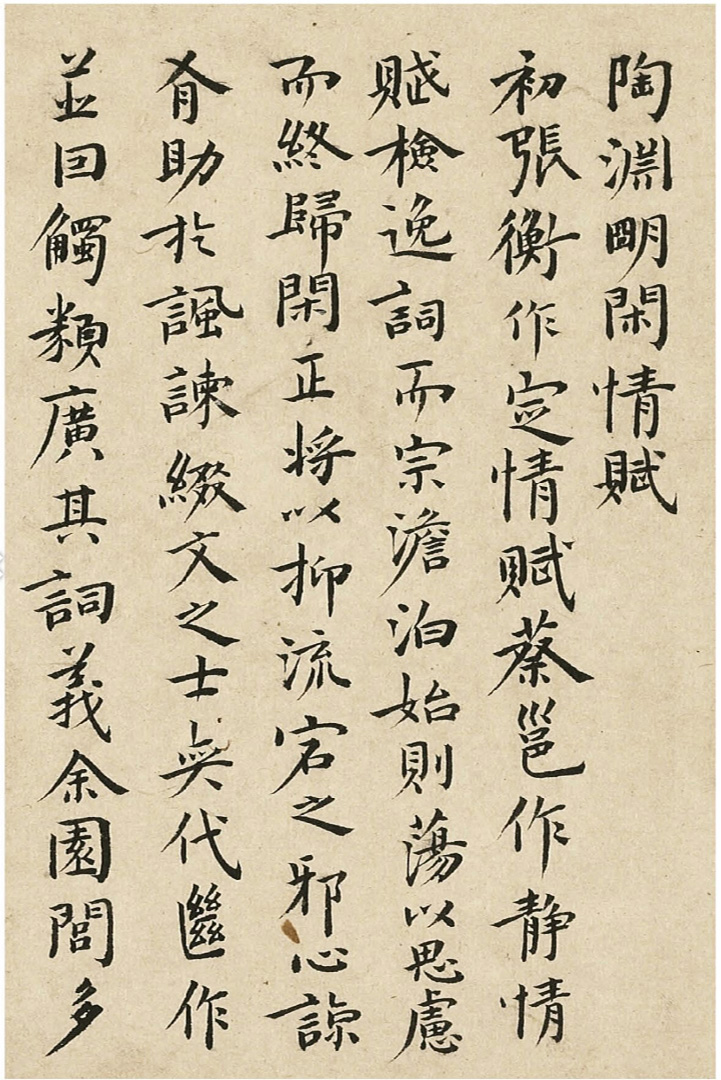 陶淵明閑情賦
初張衡作定情賦蔡邕作静情
賦檢逸詞而宗澹泊始則蕩以思慮
而終歸閑正将以抑流宕之邪心諒
有助於諷諫綴文之士奕代繼作
並因觸類廣其詞義余園閭多